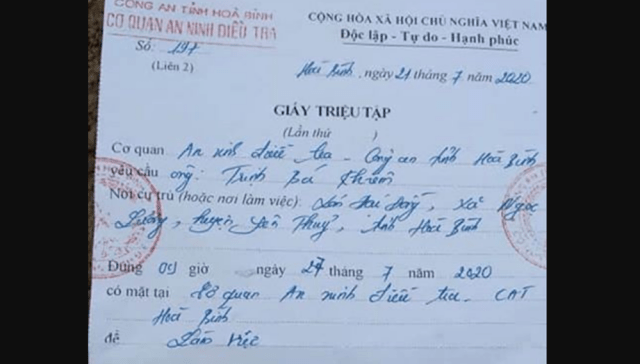 CÔNG AN TỈNH HOÀ BÌNH
CƠ QUAN AN NINH ĐIỀU TRA
Số: 197
(Liên 2)
CỘNG HÒA XÃ HỘI CHỦ NGHĨA VIỆT NAM
Độc lập - Tự do - Hạnh phúc
Hoà Bình, ngày 21 tháng 7 năm 2020
GIẤY TRIỆU TẬP
(Lần thứ )
Cơ quan An ninh điều tra - Công an tỉnh Hoà Bình
yêu cầu ông: Trịnh Bá Khiêm
Nơi cư trú (hoặc nơi làm việc): xã Ngọc
Lương, huyện Yên Thuỷ, tỉnh Hoà Bình
Đúng 09 giờ ngày 27 tháng 7 năm 2020
có mặt tại Cơ quan An ninh điều tra - CAT
Hoà Bình
để Làm việc